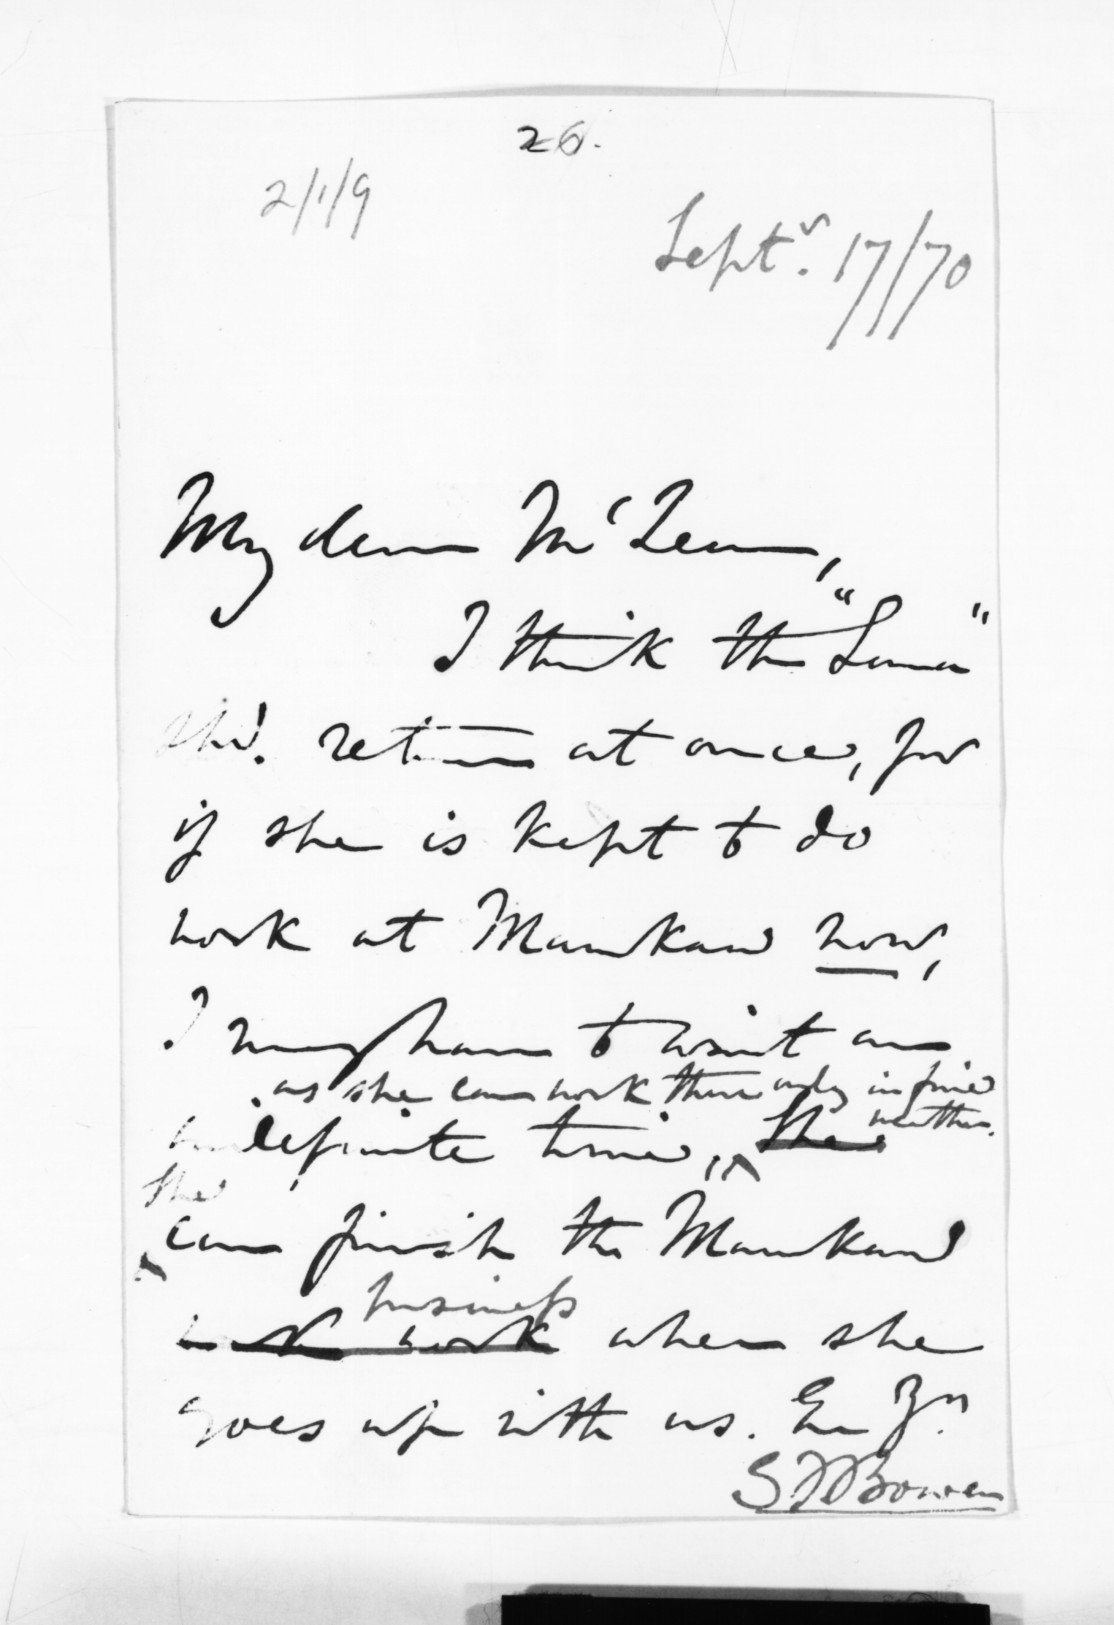 26.
2/1/9
Septr. 17/70
My dear McLean,
I think the "Luna"
shd. return at once, for
if she is kept to do
work at Manukau now,
I may have to wait an
as she can work there only in fine
indefinite time, the weather.
She
can finish the Manukau
business
work when she
goes up with us. Ever Yrs.
G F Bowen